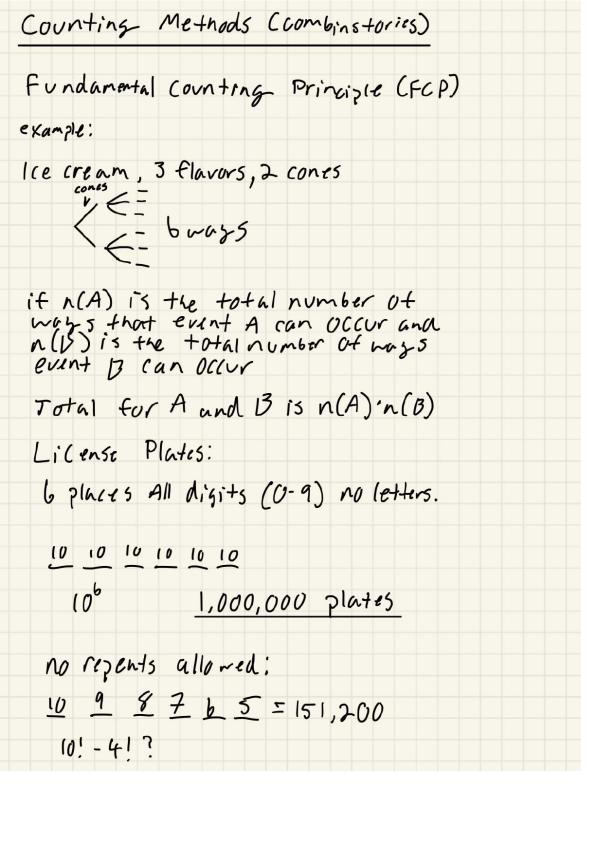 Counting Methods (combinstories)
Fundamental Counting Principle (FCP)
example:
Ice cream, 3 flavors, 2 cones
cones
6 ways
if n(A) is the total number of
ways that event A can occur and
n(B) is the total number of ways
event B can occur
Total for A and B is n(A)·n(B)
License Plates:
6 places All digits (0-9) no letters.
10 10 10 10 10 10
10⁶ 1,000,000 plates
no repents allowed:
10 9 8 7 6 5 = 151,200
10! - 4! ?